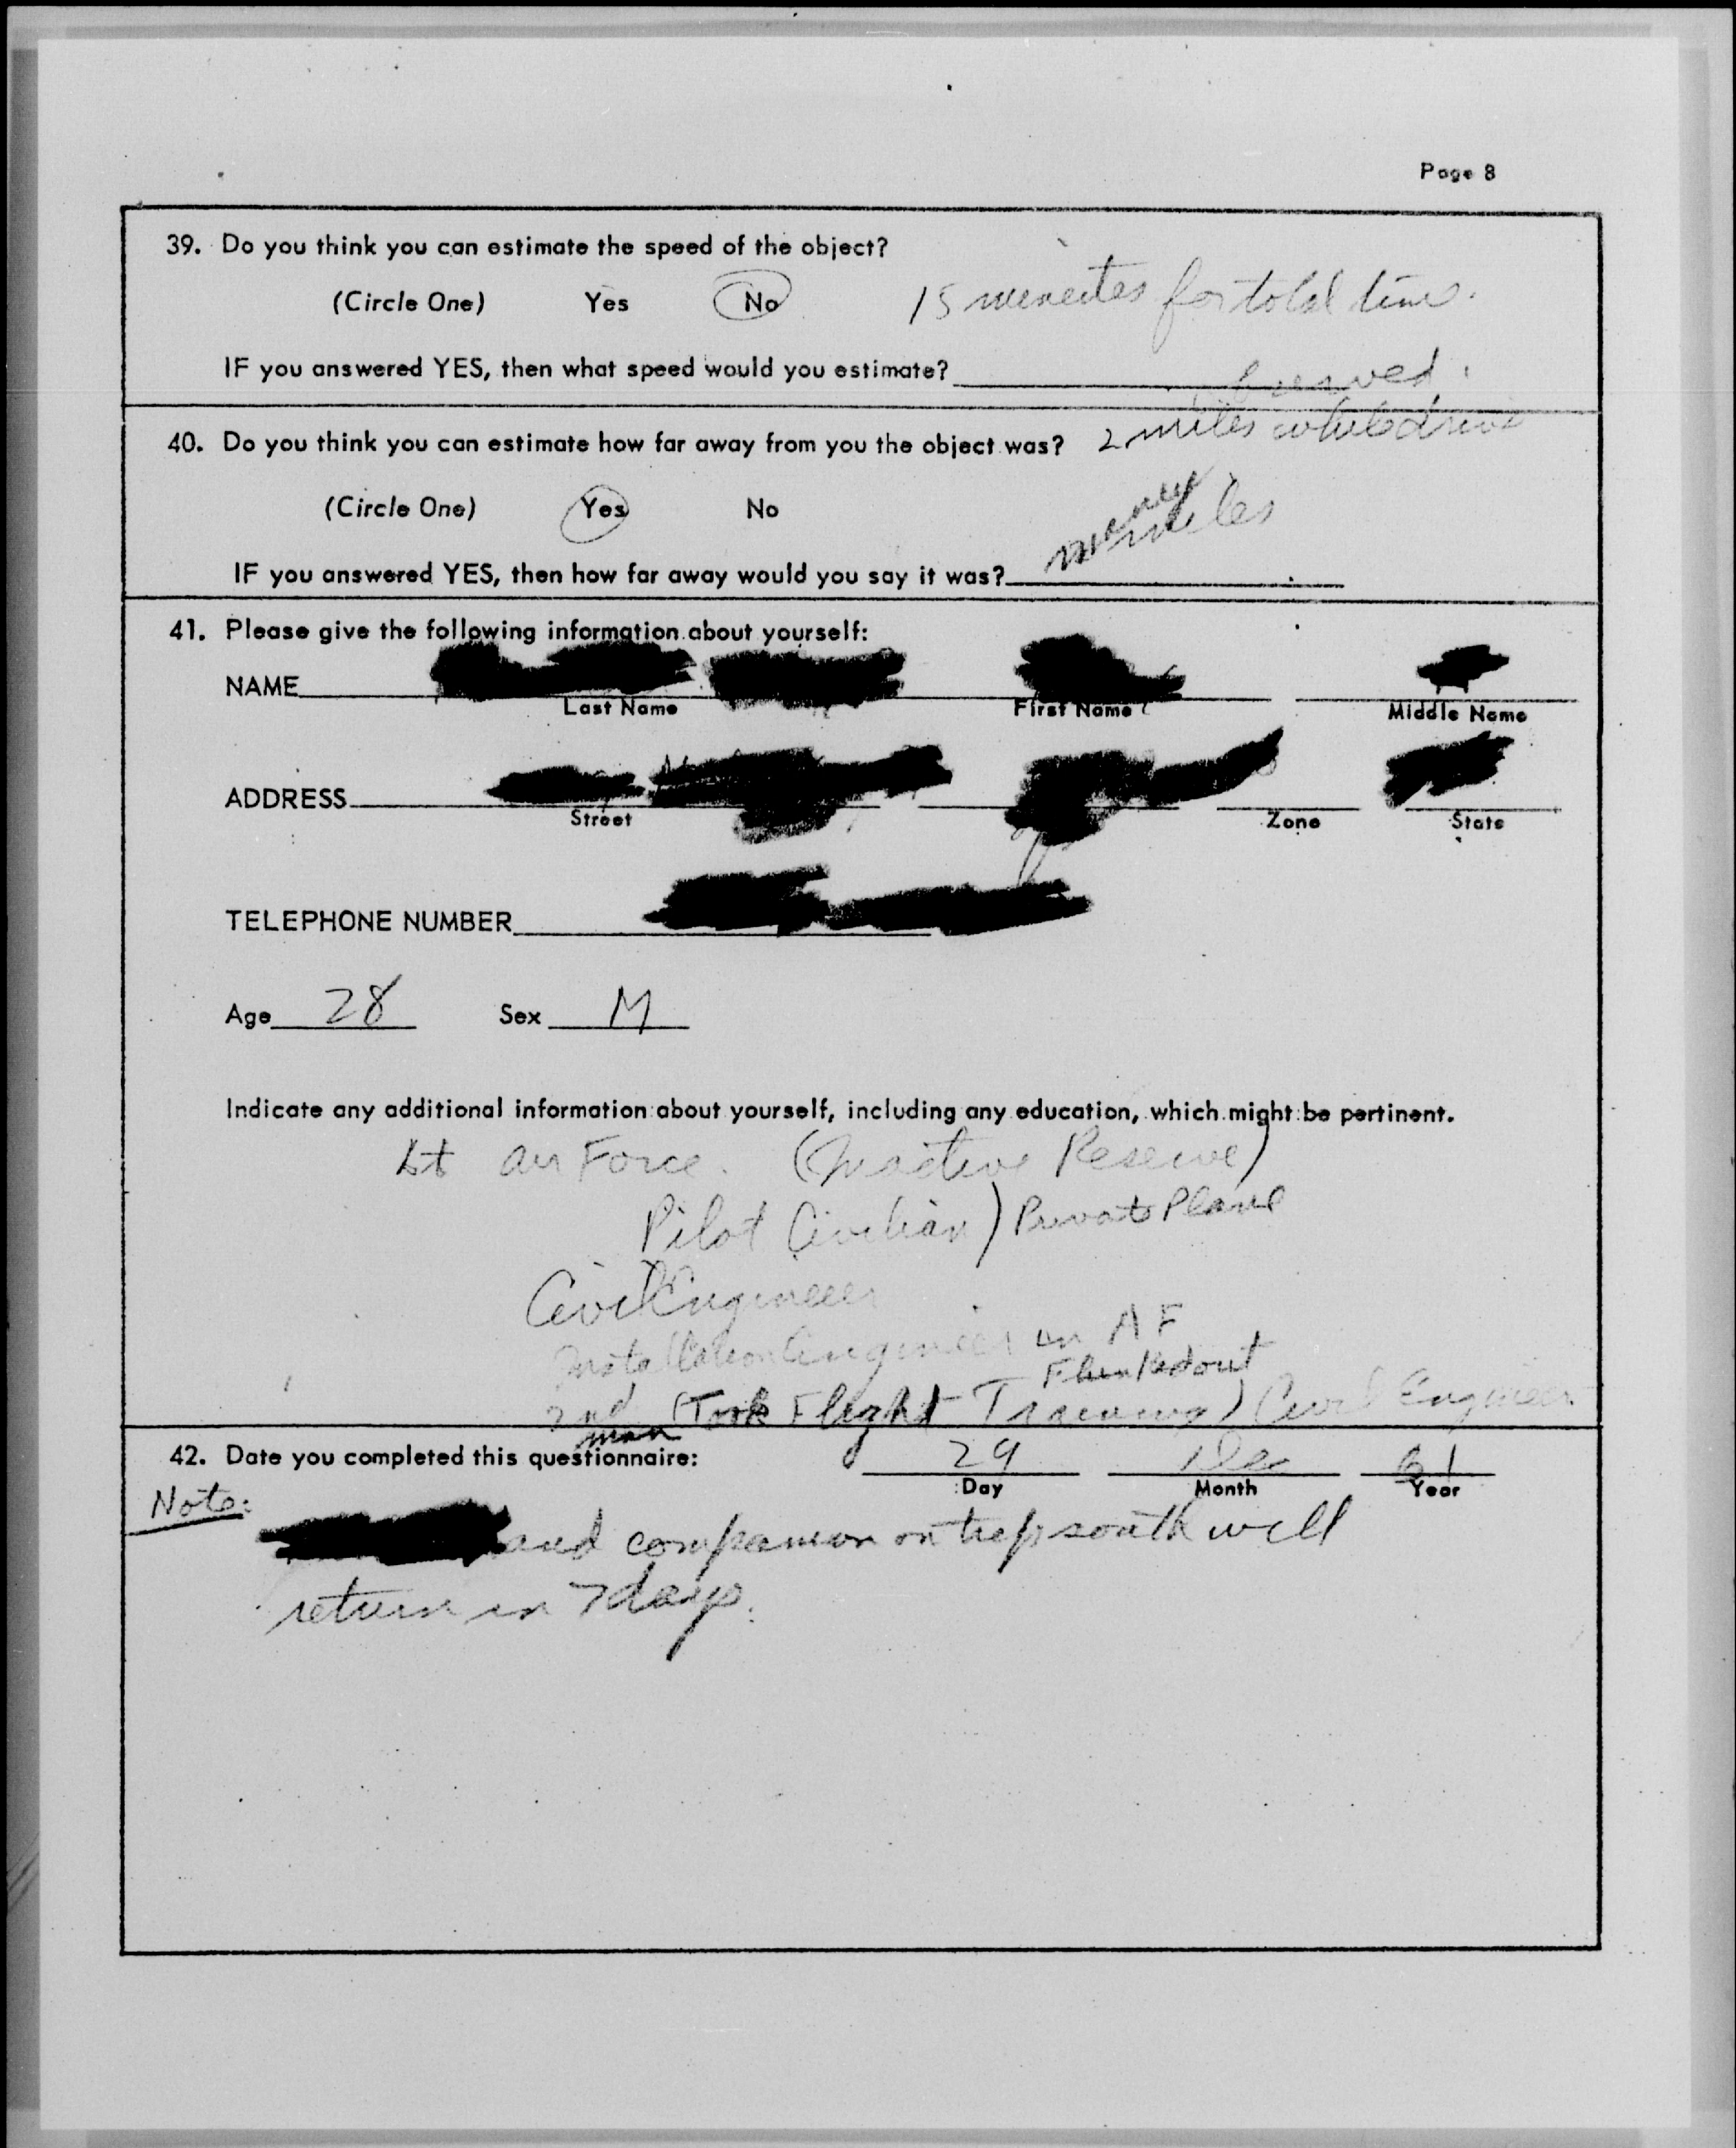 Page 8
39. Do you think you can estimate the speed of the object?
(Circle One) Yes No 15 minutes for total time.
IF you answered YES, then what speed would you estimate?
40. Do you think you can estimate how far away from you the object was? 2 miles while
(Circle One) Yes No
IF you answered YES, then how far away would you say it was? many miles
41. Please give the following information about yourself:
NAME
Last Name First Name Middle Name
ADDRESS
Street Zone State
TELEPHONE NUMBER
Age 28 Sex M
Indicate any additional information about yourself, including any education, which might be pertinent.
Lt Air Force. (Inactive Reserve)
Pilot Civilian) Private Plane
Civil Engineer
Installation Engineer in AF
Flunked out
2nd man (Took Flight Training) Civil Engineer
42. Date you completed this questionnaire: 29 Dec 61
Day Month Year
Note:
and companion on trip south will
return in 7 days.